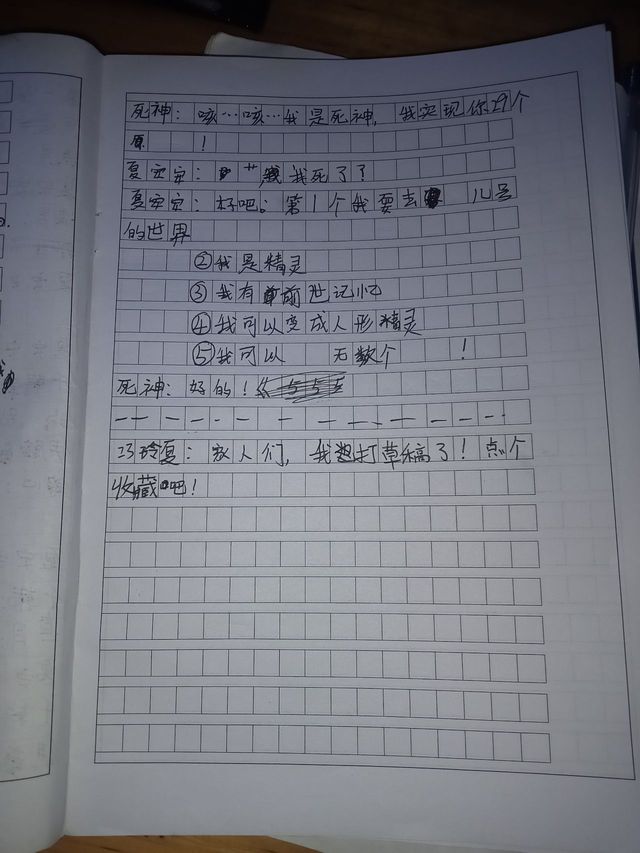 死神：咳…咳…我是死神，我实现你29个
！
夏安安：我死了？
夏安安：好吧。第1个我要去 儿号
的世界
②我是精灵
③我有前世记忆
④我可以变成人形精灵
⑤我可以 无数个 ！
死神：好的！
巧玲夏：家人们，我边打草稿了！点个
收藏吧！